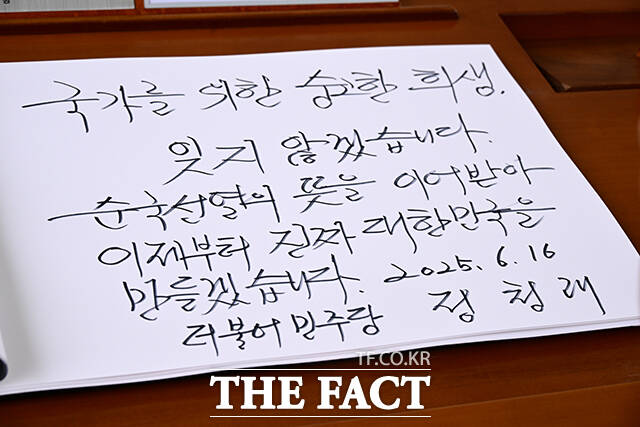 국가를 위한 숭고한 희생.
잊지 않겠습니다.
순국선열의 뜻을 이어받아
이제부터 진짜 대한민국을
만들겠습니다. 2025. 6. 16
더불어민주당 정청래
TF.CO.KR
THE FACT